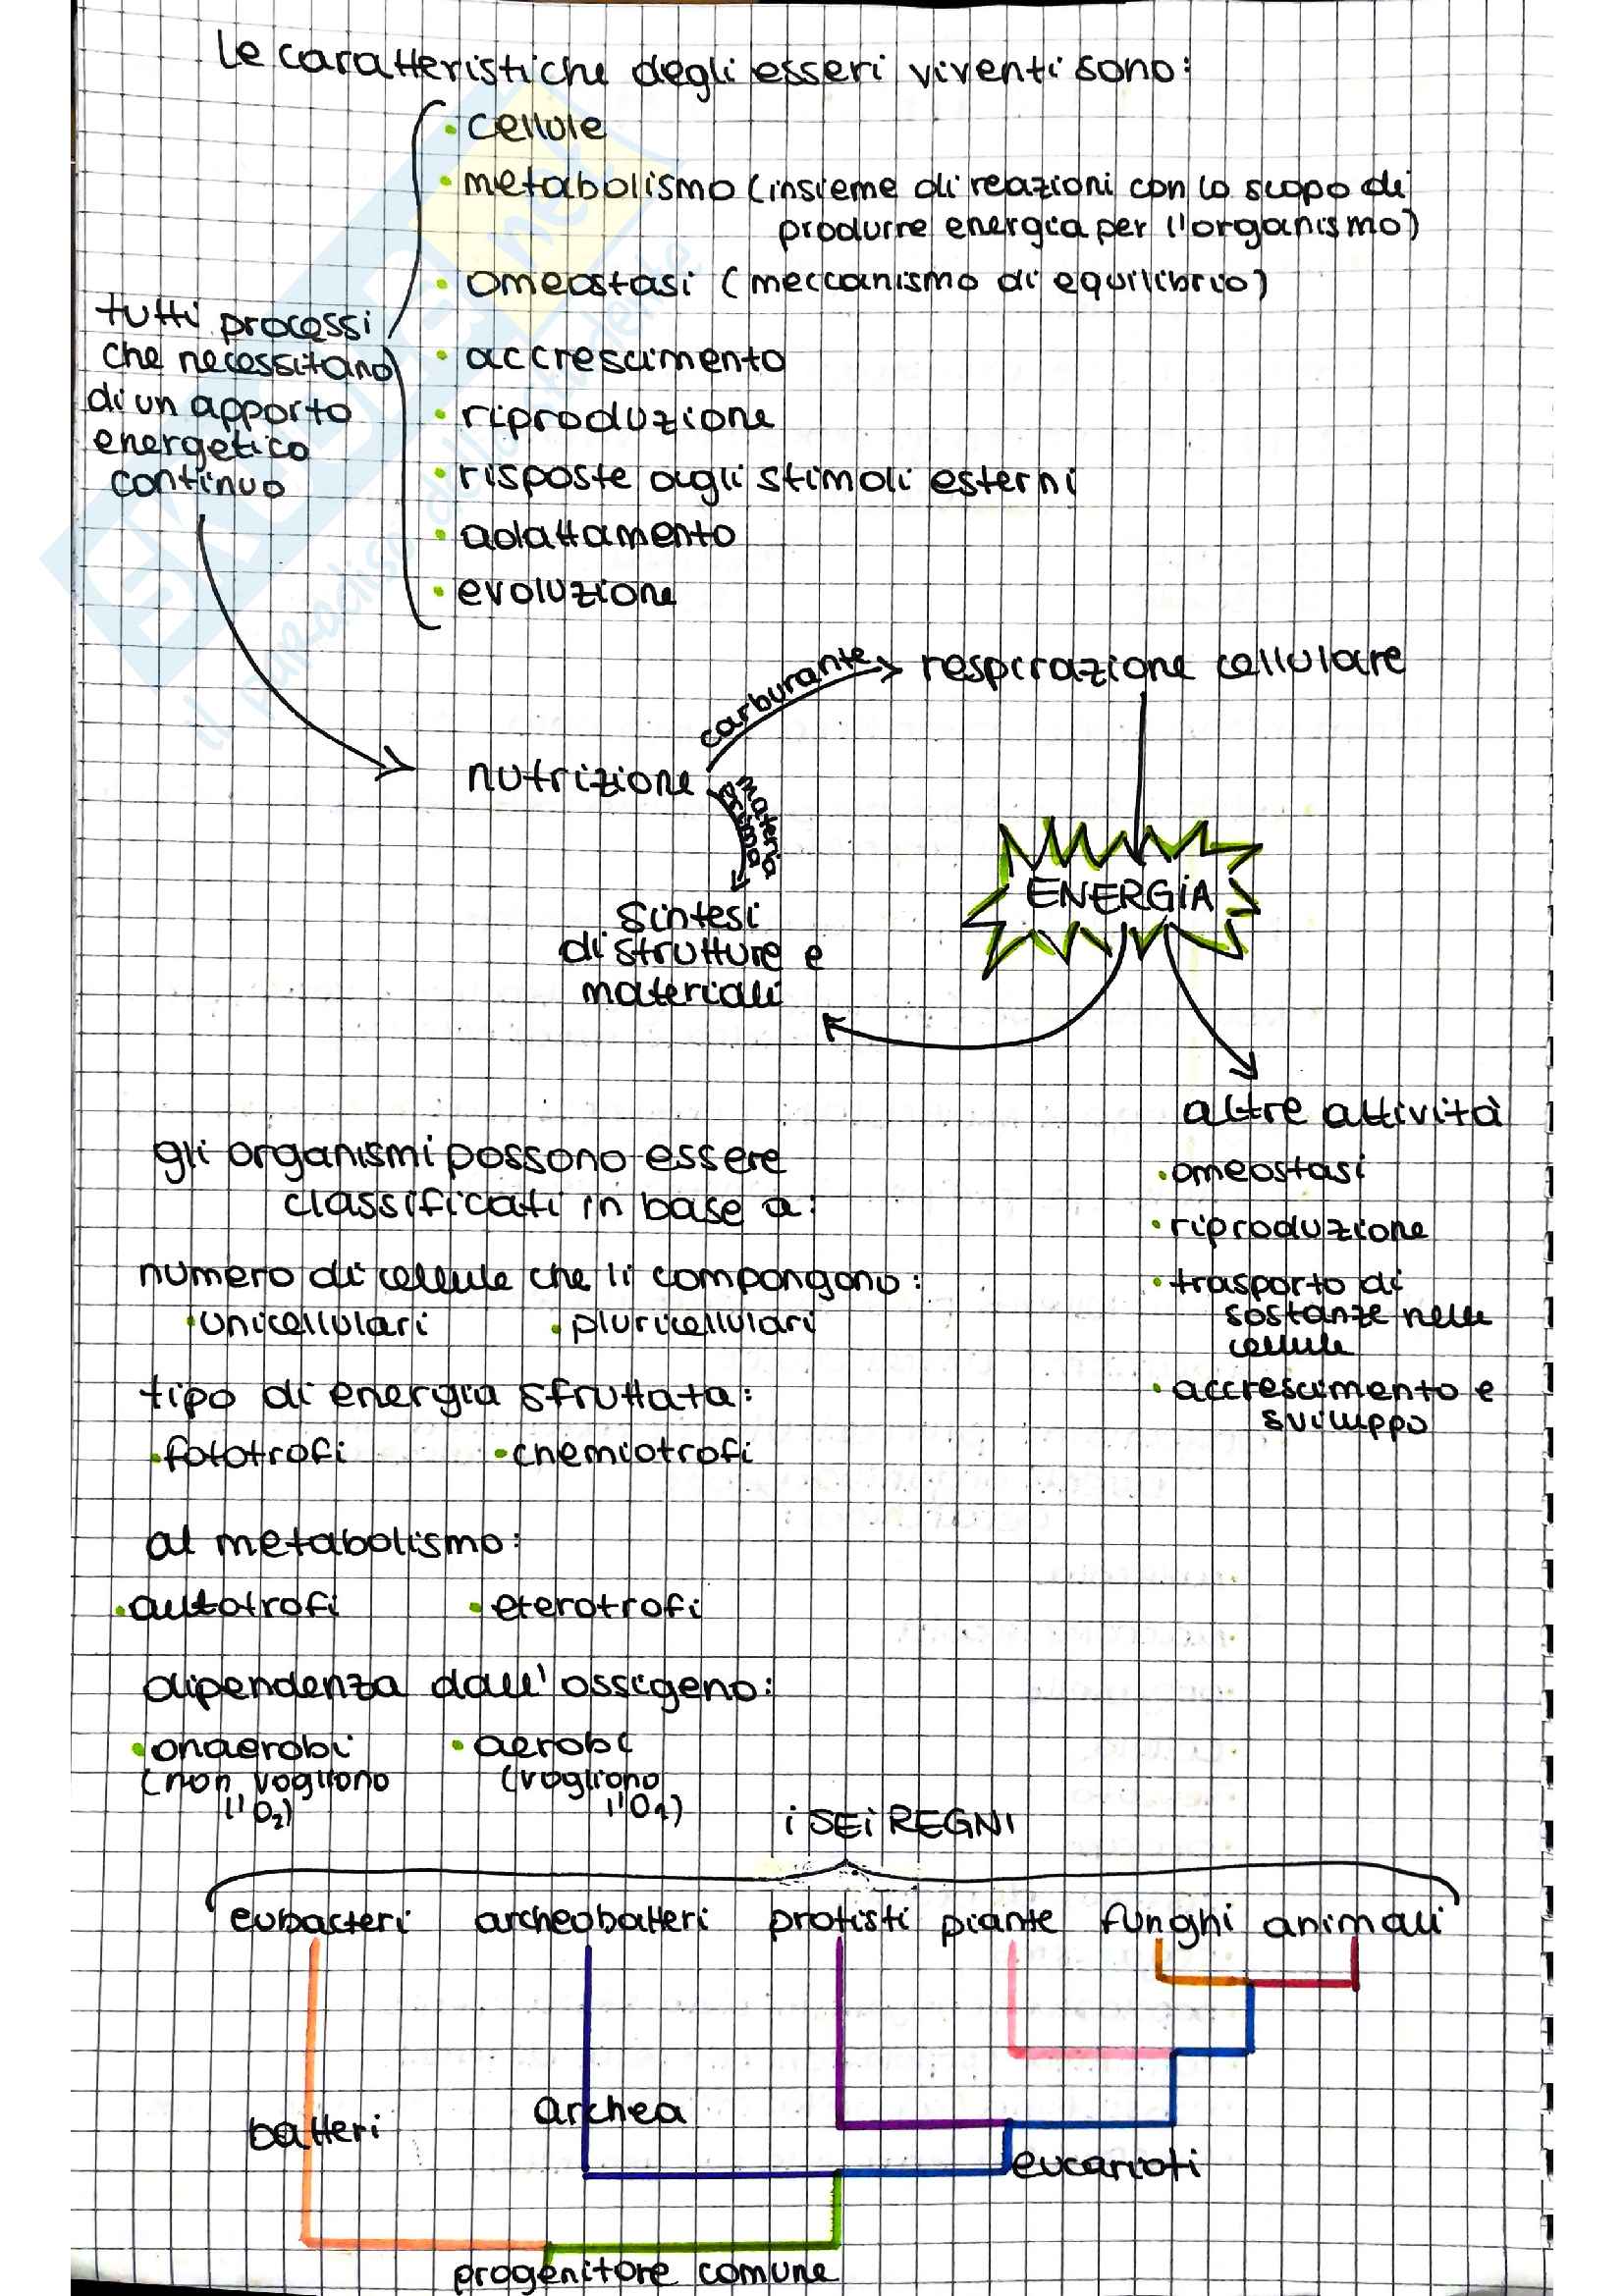 le caratteristiche degli esseri viventi sono:
• cellule
• metabolismo (insieme di reazioni con lo scopo di
produrre energia per l'organismo)
• omeostasi (meccanismo di equilibrio)
• accrescimento
• riproduzione
• risposte agli stimoli esterni
• adattamento
• evoluzione
tutti processi
che necessitano
di un apporto
energetico
continuo
nutrizione
carburante
respirazione cellulare
materia
prima
sintesi
di strutture e
materiali
ENERGIA
altre attività
• omeostasi
• riproduzione
• trasporto di
sostanze nelle
cellule
• accrescimento e
sviluppo
gli organismi possono essere
classificati in base a:
numero di cellule che li compongono:
• unicellulari • pluricellulari
tipo di energia sfruttata:
• fototrofi • chemiotrofi
al metabolismo:
• autotrofi • eterotrofi
dipendenza dall'ossigeno:
• anaerobi • aerobi
(non vogliono (vogliono
l'O₂) l'O₂)
i SEI REGNI
eubatteri archeobatteri protisti piante funghi animali
batteri archea
eucarioti
progenitore comune
SKUOLA.net
il paradiso dello studente